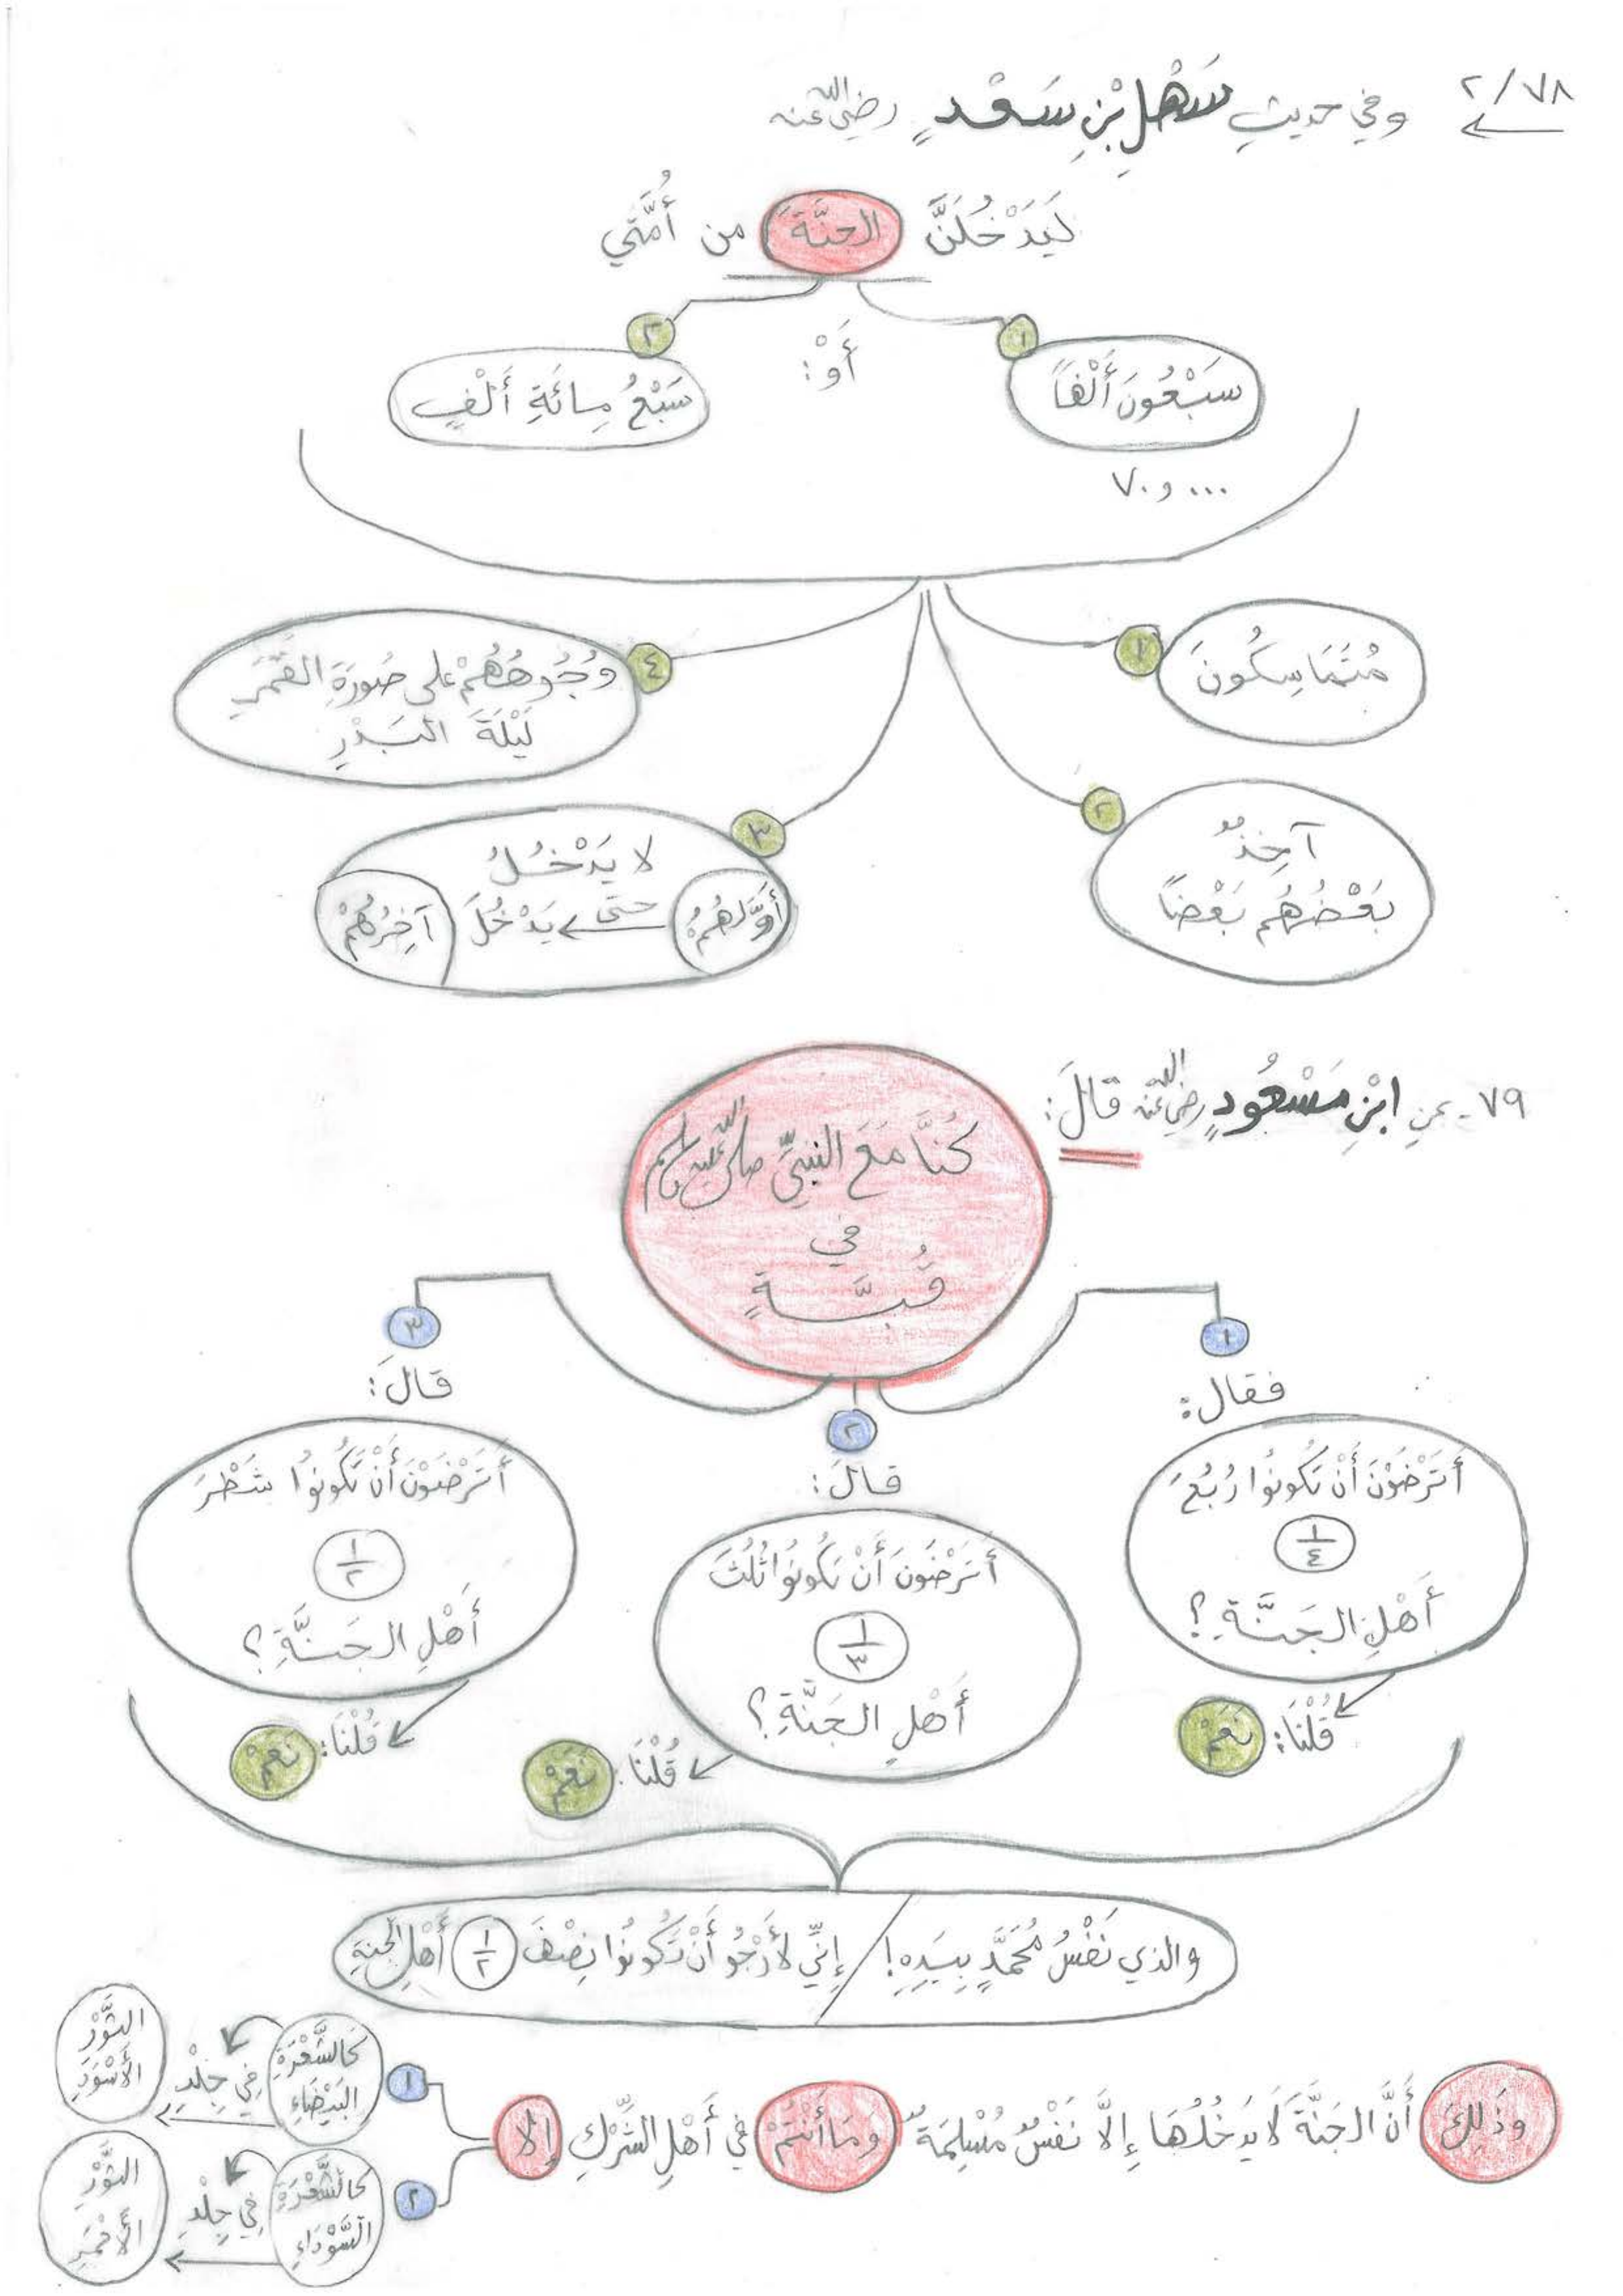 ٢/٧٨ وفي حديثِ سَهْلِ بْنِ سَعْدٍ رضي الله عنه
لَيَدْخُلَنَّ الجنَّةَ من أُمَّتي
١
سَبْعُونَ أَلْفاً
أَوْ:
٢
سَبْعُ مِائَةِ أَلْفٍ
... و٧٠
١
مُتَمَاسِكُونَ
٢
آخِذٌ
بَعْضُهُم بَعْضاً
٣
لا يَدْخُلُ
أَوَّلُهُمْ حتى يَدْخُلَ آخِرُهُمْ
٤
وُجُوهُهُمْ على صُورَةِ القَمَرِ
لَيْلَةَ البَدْرِ
٧٩- عنِ ابْنِ مَسْعُودٍ رضي الله عنه قالَ:
كُنَّا مَعَ النبيِّ صلى الله عليه وسلم
في
قُبَّةٍ
١
فقال:
أَتَرْضَوْنَ أَنْ تَكُونُوا رُبُعَ
١/٤
أَهْلِ الجَنَّةِ؟
قُلْنَا: نَعَمْ
٢
قالَ:
أَتَرْضَوْنَ أَنْ تَكُونُوا ثُلُثَ
١/٣
أَهْلِ الجَنَّةِ؟
قُلْنَا: نَعَمْ
٣
قالَ:
أَتَرْضَوْنَ أَنْ تَكُونُوا شَطْرَ
١/٢
أَهْلِ الجَنَّةِ؟
قُلْنَا: نَعَمْ
والذي نَفْسُ مُحَمَّدٍ بِيَدِهِ! / إِنِّي لأَرْجُو أَنْ تَكُونُوا نِصْفَ ١/٢ أَهْلِ الجنةِ
وَذَلِكَ أَنَّ الجَنَّةَ لَا يَدْخُلُهَا إِلَّا نَفْسٌ مُسْلِمَةٌ وَمَا أَنْتُمْ في أَهْلِ الشِّرْكِ إِلا
١
كَالشَّعْرَةِ البَيْضَاءِ في جِلْدِ الثَّوْرِ الأَسْوَدِ
٢
كَالشَّعْرَةِ السَّوْدَاءِ في جِلْدِ الثَّوْرِ الأَحْمَرِ